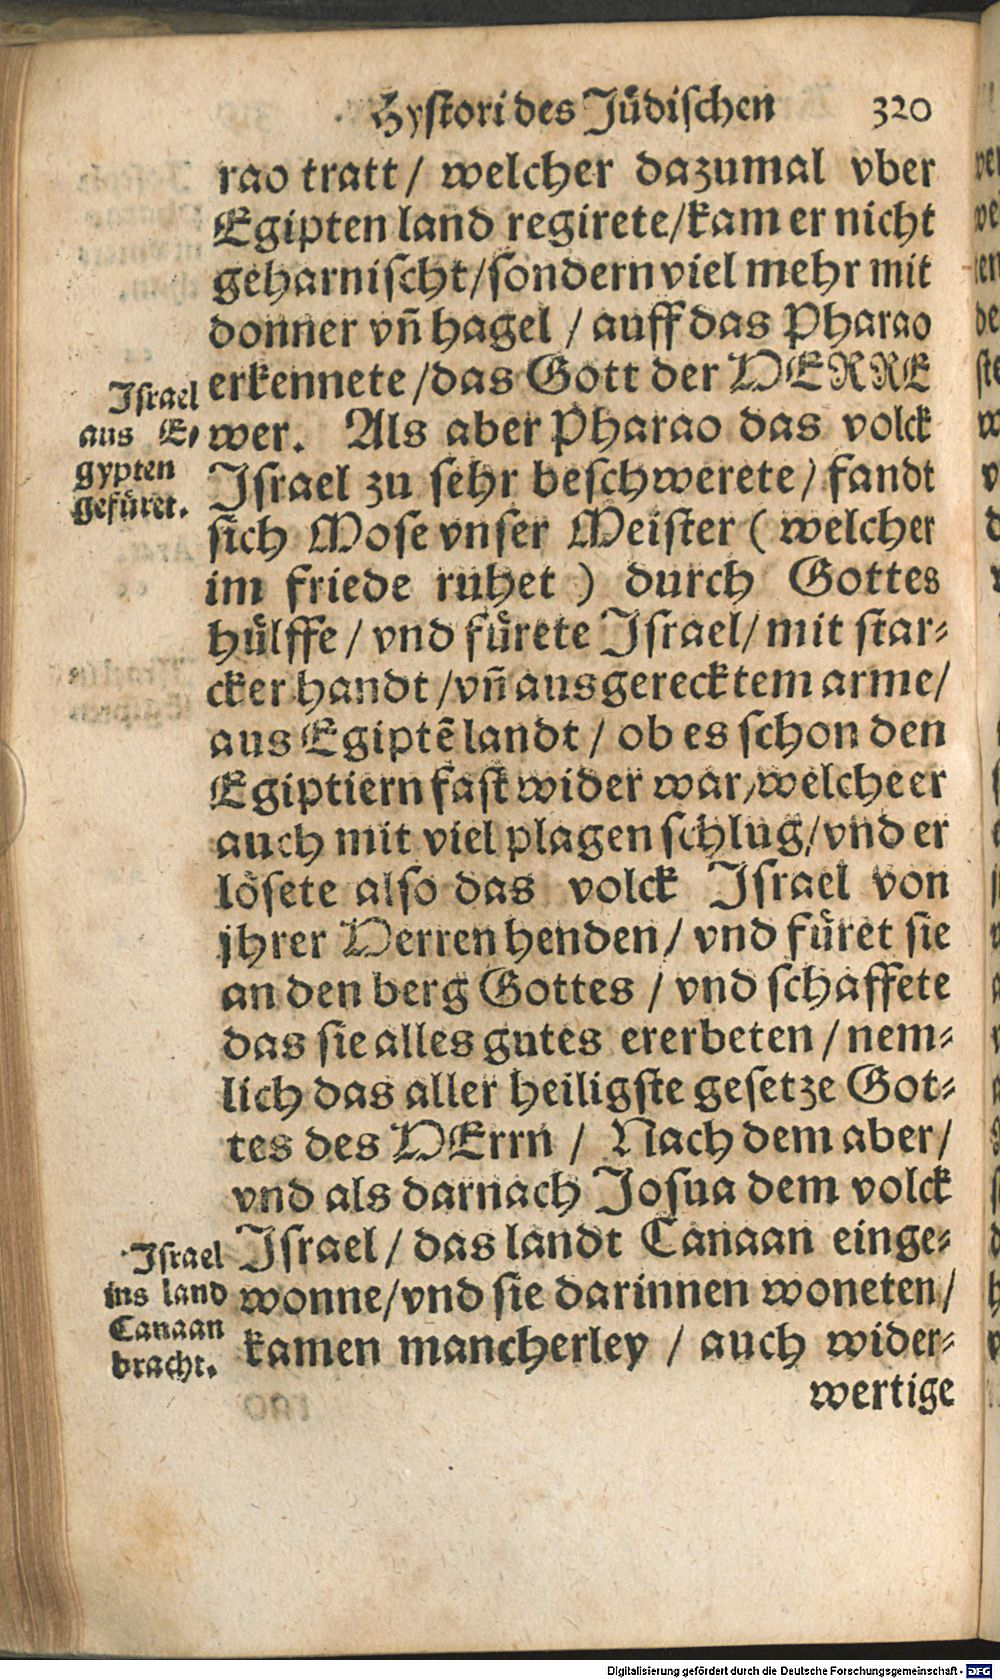 Hystori des Jüdischen 320
rao tratt / welcher dazumal vber
Egipten land regirete/kam er nicht
geharnischt/sondern viel mehr mit
donner vñ hagel / auff das Pharao
erkennete /das Gott der HERRE
wer. Als aber Pharao das volck
Israel zu sehr beschwerete/ fandt
sich Mose vnser Meister ( welcher
im friede ruhet ) durch Gottes
hülffe / vnd fürete Israel/ mit star⸗
cker handt /vñ ausgerecktem arme/
aus Egiptē landt / ob es schon den
Egiptiern fast wider war/welche er
auch mit viel plagen schlug/vnd er
lösete also das volck Israel von
jhrer Herren henden/ vnd füret sie
an den berg Gottes / vnd schaffete
das sie alles gutes ererbeten / nem⸗
lich das aller heiligste gesetze Got⸗
tes des HErrn / Nach dem aber/
vnd als darnach Josua dem volck
Israel / das landt Canaan einge⸗
wonne/vnd sie darinnen woneten/
kamen mancherley / auch wider⸗
wertige
Israel
aus E⸗
gypten
gefüret.
Israel
ins land
Canaan
bracht.
Digitalisierung gefördert durch die Deutsche Forschungsgemeinschaft - DFG